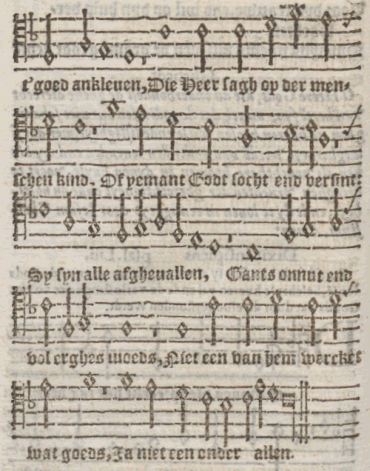 t'goed ankleuen, Die Heer sagh op der men-
schen kind. Of yemant Godt socht end versint:
Sy syn alle afgheuallen, Gants onnut end
vol erghes moeds, Niet een van hem werckes
wat goeds, Ja niet een onder allen.